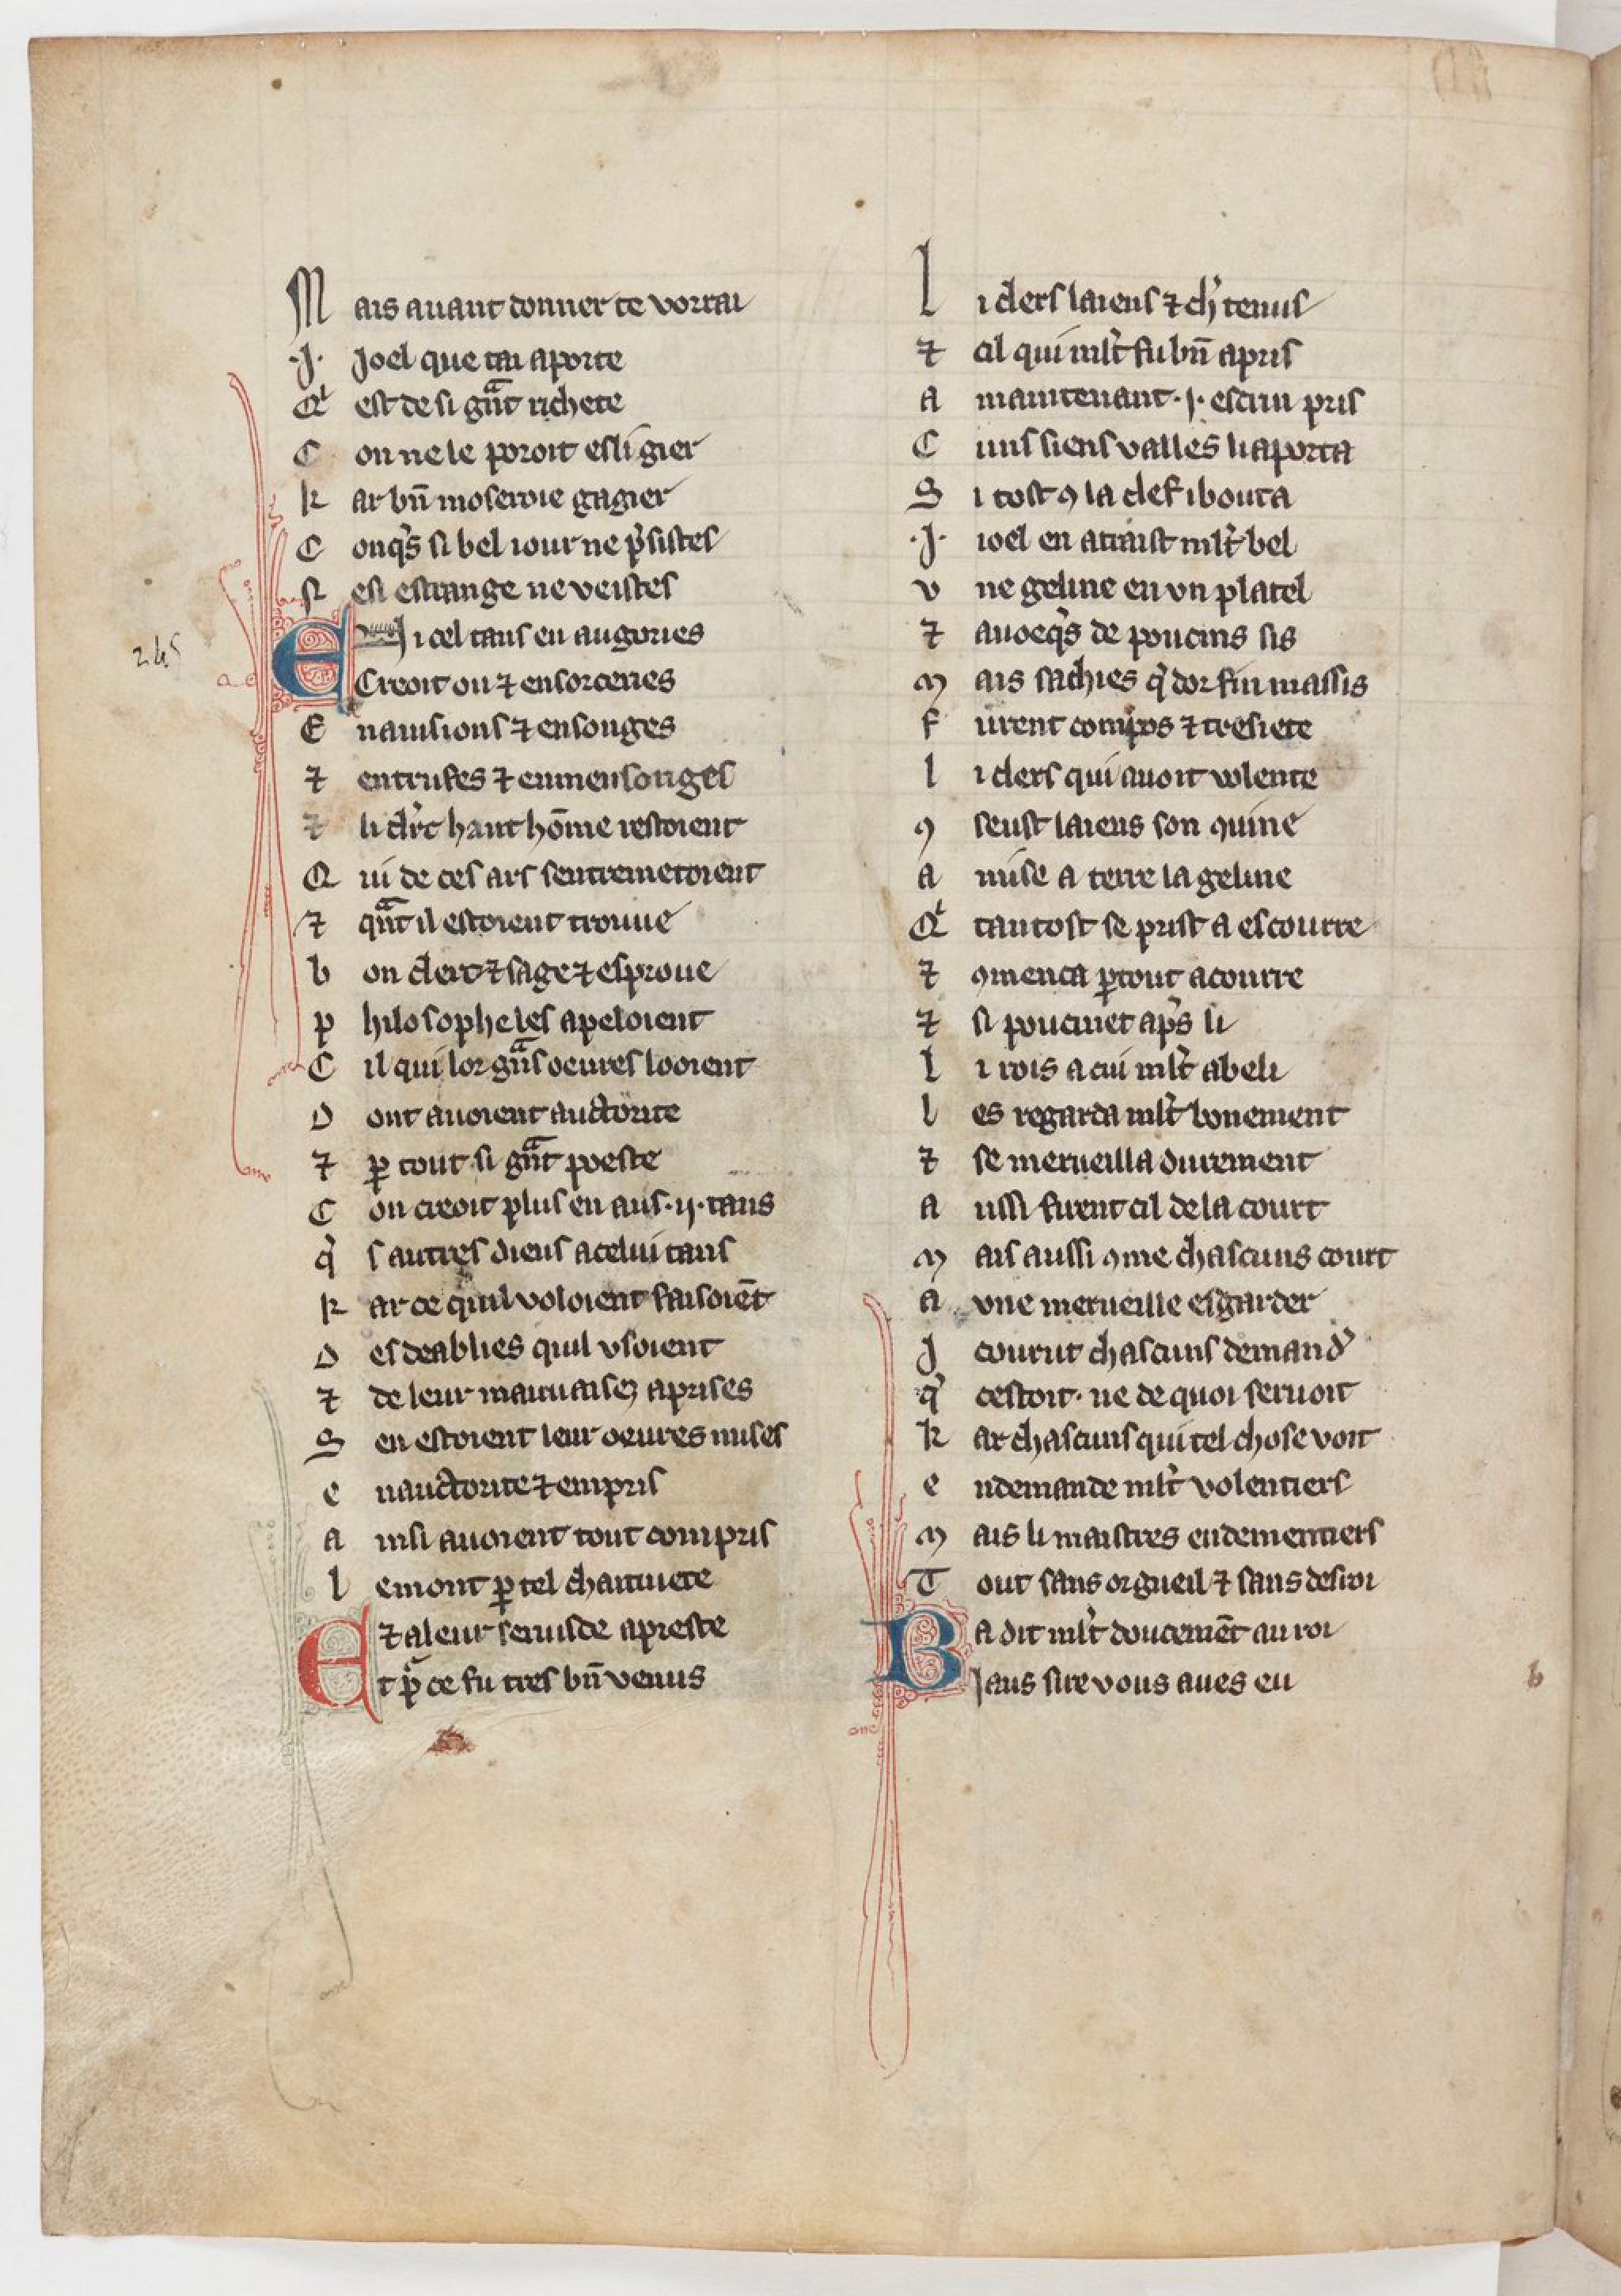 Mais auant donner te vorrai
.J. Joel que tai aporte
Qi est de si gñt richete
C on ne le poroit esligier
K ar bñ moseroie gagier
C onqs si bel iour ne psistes
N e si estrange ne veistes
E N icel tans en augories
Creoit on ⁊ en sorceries
E n auisions ⁊ en songes
⁊ en trufes ⁊ en mensonges
⁊ li clerc haut hōme restoient
Q ui de ces ars sentremetoient
⁊ qñt il estoient trouue
b on clerc ⁊ sage ⁊ esproue
p hilosophe les apeloient
C il qui lor gñs oeures looient
D ont auoient auctorite
⁊ ꝑ tout si gñt poeste
C on creoit plus en aus .ij. tans
q s autres dieus a celui tans
K ar ce quil voloient faisoiēt
D es deablies quil vsoient
⁊ de leur mauuaises aprises
S en estoient leur oeures mises
e n auctorite ⁊ em pris
a insi auoient tout compris
l e mont ꝑ tel chaitiuete
E ⁊ a leur seruisce apreste
t ꝑ ce fu tres bñ venus
L i clers laiens ⁊ ch' tenus
⁊ cil qui mlt' fu bñ apris
A maintenant .j. escrin pris
C uns siens valles li aporta
S i tost ꝯ la clef i bouta
.J. ioel en atraist mlt' bel
v ne geline en vn platel
⁊ auoeqs de poucins sis
m ais sachies q dor fin massis
f urent compos ⁊ tresiete
l i clers qui auoit volente
ꝯ seust laiens son ꝯuine
a mise a terre la geline
Qi tantost se prist a escourre
⁊ ꝯmenca ꝑtout a courre
⁊ si poucinet ap's li
l i rois a cui mlt' abeli
l es regarda mlt' bonement
⁊ se merueilla durement
a ussi furent cil de la court
m ais aussi ꝯme chascuns court
a vne merueille esgarder
J courut chascuns demand'
q cestoit. ne de quoi seruoit
k ar chascuns qui tel chose voit
e ndemande mlt' volentiers
m ais li maistres endementiers
T out sans orgueil ⁊ sans desroi
B A dit mlt' doucemēt au roi
Jaus sire vous aues eu
b
245